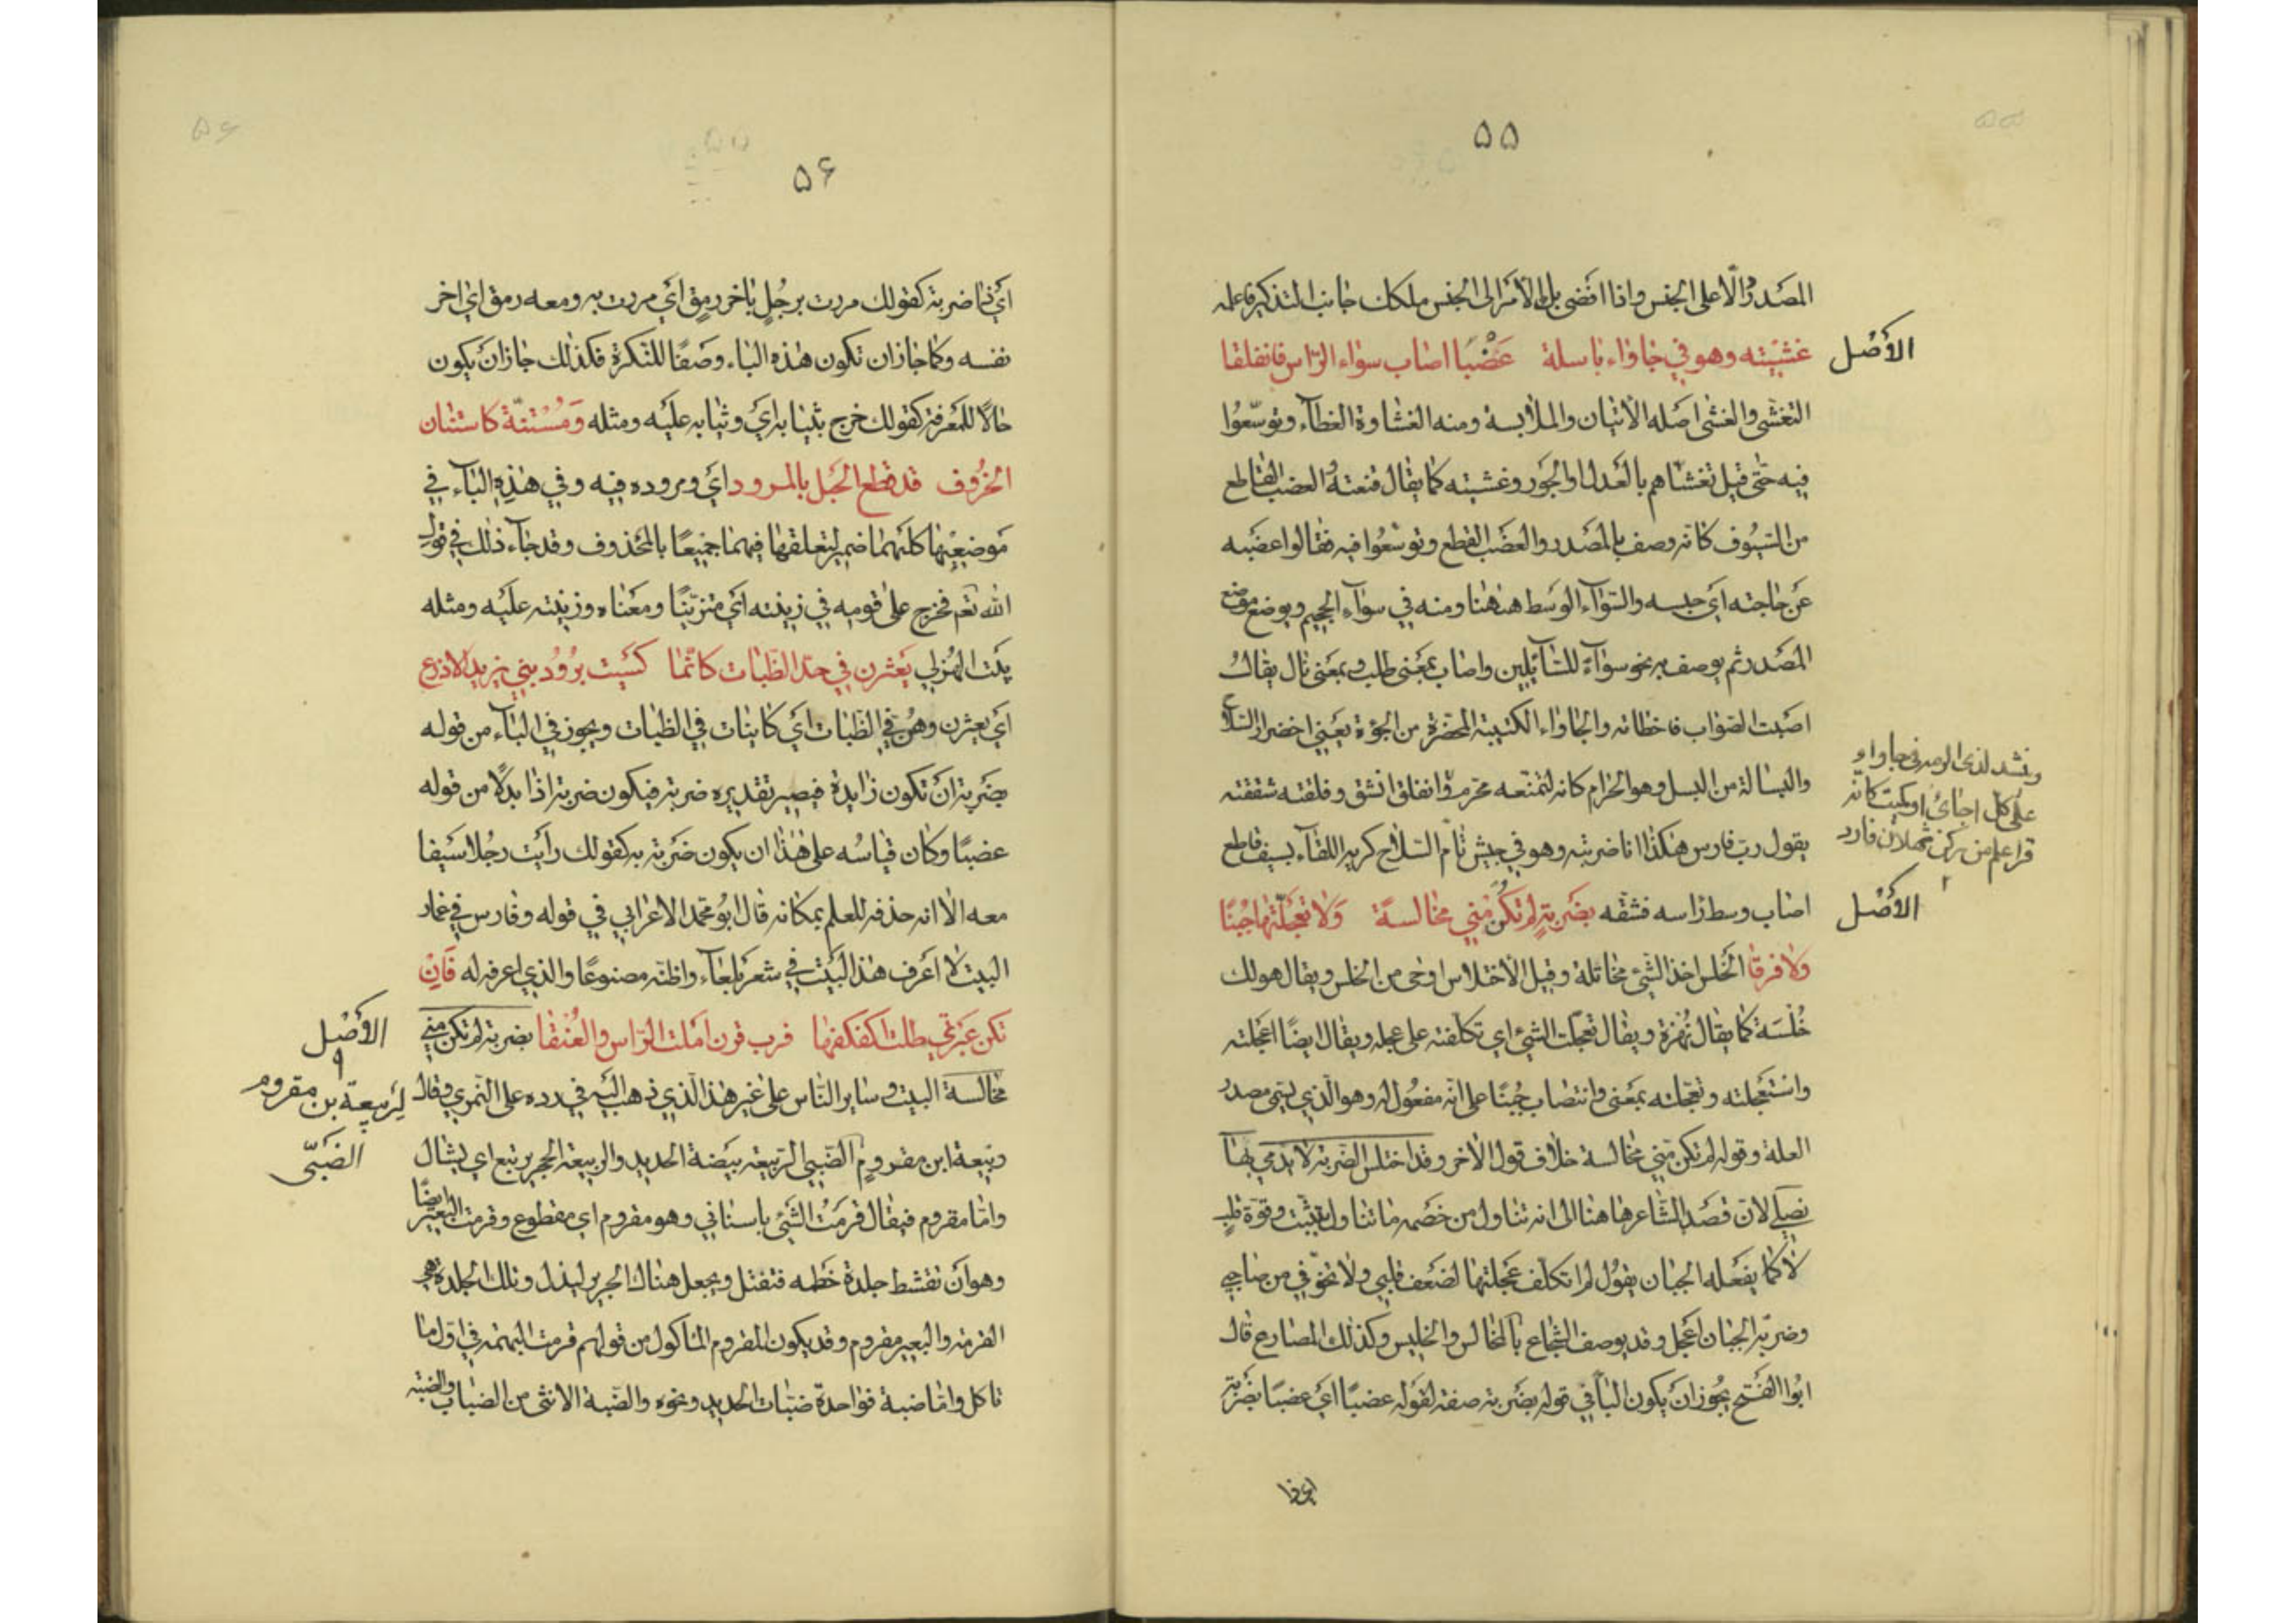 ٥٥
المصدر دالّا على الجنس واذا افضى بك الامر الى الجنس ملكك جانب التذكير فاعلمه
الأصْل
غشيته وهو في جاواء باسلة عَضْبًا اصاب سواء الرّاس فانفلقا
التغشى والغشى اصله الاتيان والملابسة ومنه الغشاوة الغطآء وتوسّعوا
فيه حتى قيل تغشّاهم بالعدل او الجور وغشيته كما يقال قنعته والعضب القاطع
من السّيوف كانه وصف بالمصدر والعضب القطع وتوسّعوا فيه فقالوا عضبه
عن حاجته اي حبسه والسّوآء الوسط ههنا ومنه في سوآء الجحيم ويوضع موضع
المصدر ثم يوصف به نحو سوآءً للسّآئلين واصاب بمعنى طلب وبمعنى نال يقال
اصبت الصواب فاخطاته والجاواء الكتيبة المخضرة من الجؤة يعني اخضرار السّلاح
وينشد لذى الرمه في جاواء
على كل اجاى او كميت كانه
والبسالة من البسل وهو الحرام كانه لتمنّعه محرم وانفلق انشق وفلقته شققته
يقول ربّ فارس هكذا انا ضربته وهو في جيش تامّ السّلاح كريه اللقآء بسيف قاطع
الأصْل
اصاب وسط راسه فشقّه بضربةٍ لم تكن منّي مخالسةً وَلا تعجّلتها جُبنًا
ولا فرقا الخلس اخذ الشئ مخاتلة وقيل الاختلاس اوحى من الخلس ويقال هو لك
خُلْسَة كما يقال نُهْزة ويقال تعجّلت الشئ اي تكلفته على عجله ويقال ايضًا اعجلته
واستعجلته وتعجّلته بمعنى وانتصاب جُبنًا على انّه مفعُول له وهو الّذي يسمّى مصدر
العلة وقوله لم تكن منّي مخالسة خلاف قول الاخر وقد اختلس الضربة لا يدمي لها
نصلي لانّ قصد الشّاعر هاهنا الى انه تناول من خصمه ما تناول بتثبّت وقوّة قلب
لا كما يفعله الجبان يقول لم اتكلف عجلتها لضعف قلبي ولا تخوّفي من صاحبي
وضربة الجبان اعجل وقد يوصف الشّجاع بالمخالس والخليس وكذلك المصارع قال
ابُوا الفتح يجُوز ان يكون البآ في قوله بضربة صفة لقوله عضبًا اي عضبًا بضربة
٥٦
اي ضربته كقولك مررت برجُلٍ باخر رمقٍ اي مررت به ومعه رمق اي اخر
نفسه وكما جاز ان تكون هذه البآء وصفًا للنكرة فكذلك جاز ان يكون
حالًا للمعرفة كقولك خرج بثيابه اي وثيابه عليه ومثله وَمُسْتَنّةٌ كاستنان
الخرُوف قد قطع الحَبل بالمرود اي ومروده فيه وفي هذه البآء في
موضعيها كلتيهما ضمير لتعلقها فيهما جميعًا بالمحذوف وقد جآء ذلك في قول
الله تعم فخرج على قومه في زينته اي متزيّنًا ومعناه وزينته عليه ومثله
بيت الهذلي يَعثرن في حدّ الظّبات كانّما كُسيت برُوُد بني يزيد الاذرع
اي يعثرن وهُنّ في الظّبات اي كاينات في الظبات ويجوز في البآء من قوله
بضربة ان تكون زايدة فيصير تقديره ضربة فيكون ضربة اذا بدلًا من قوله
عضبًا وكان قياسُه على هذا ان يكون ضربة به كقولك رأيت رجُلا سيفا
معه الا انه حذفه للعلم بمكانه قال ابُو محمّد الاعرابي في قوله وفارس في غمار
البيت لا اعرف هذا البيت في شعر بلعآء واظنّه مصنوعًا والذي اعرفه له فَاِنْ
الأصْل
بضربة لم تكن منّي
مخالسة البيت وساير النّاس على غير هذا الّذي ذهب اليه في ردّه على النّمري وقال
لِرَبيعة بن مقروم
الضَبّىّ
ربيعة ابن مقرومٍ الضّبيي الرّبيعة بيضة الحديد والربيعة الحجر يرتبع اي يشال
وامّا مقروم فيقال قرمتُ الشّئ باسناني وهو مقروم اي مقطوع وقرمت البعير ايضًا
وهو ان تقشط جلدة خطمه فتفتل ويجعل هناك الجرير ليذل وتلك الجلدة هي
القرمة والبعير مقروم وقد يكون المقروم المأكول من قولهم قرمت البهمة في اوّل ما
تاكل وامّا ضبة فواحدة ضبّات الحديد ونحوه والضّبة الانثى من الضباب والضبة